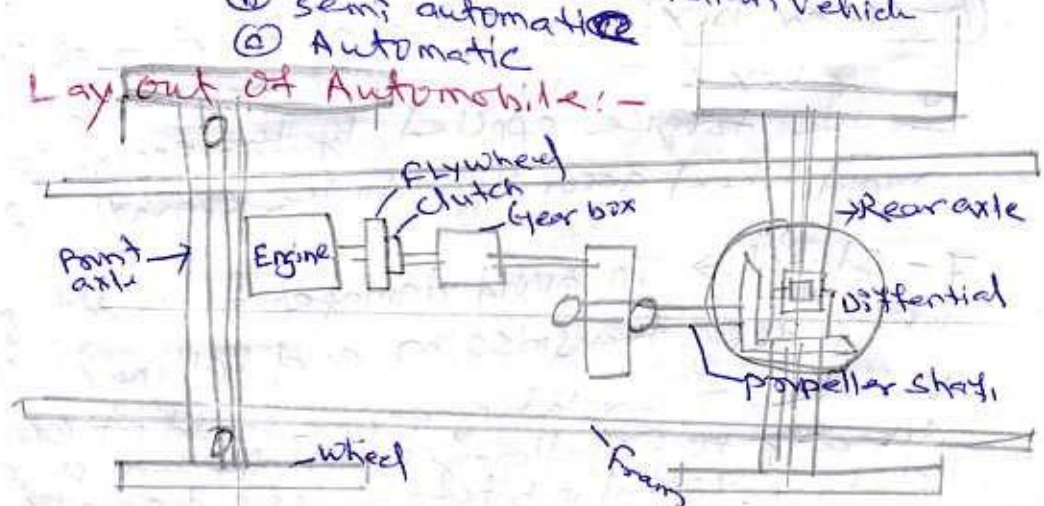 semi automatic
vehicle
Ⓒ Automatic
Lay out Of Automobile:-
Flywheel
Clutch
Gear box
→Rear axle
Front
axle
Engine
Diffential
propeller shaf,
wheel
Fram